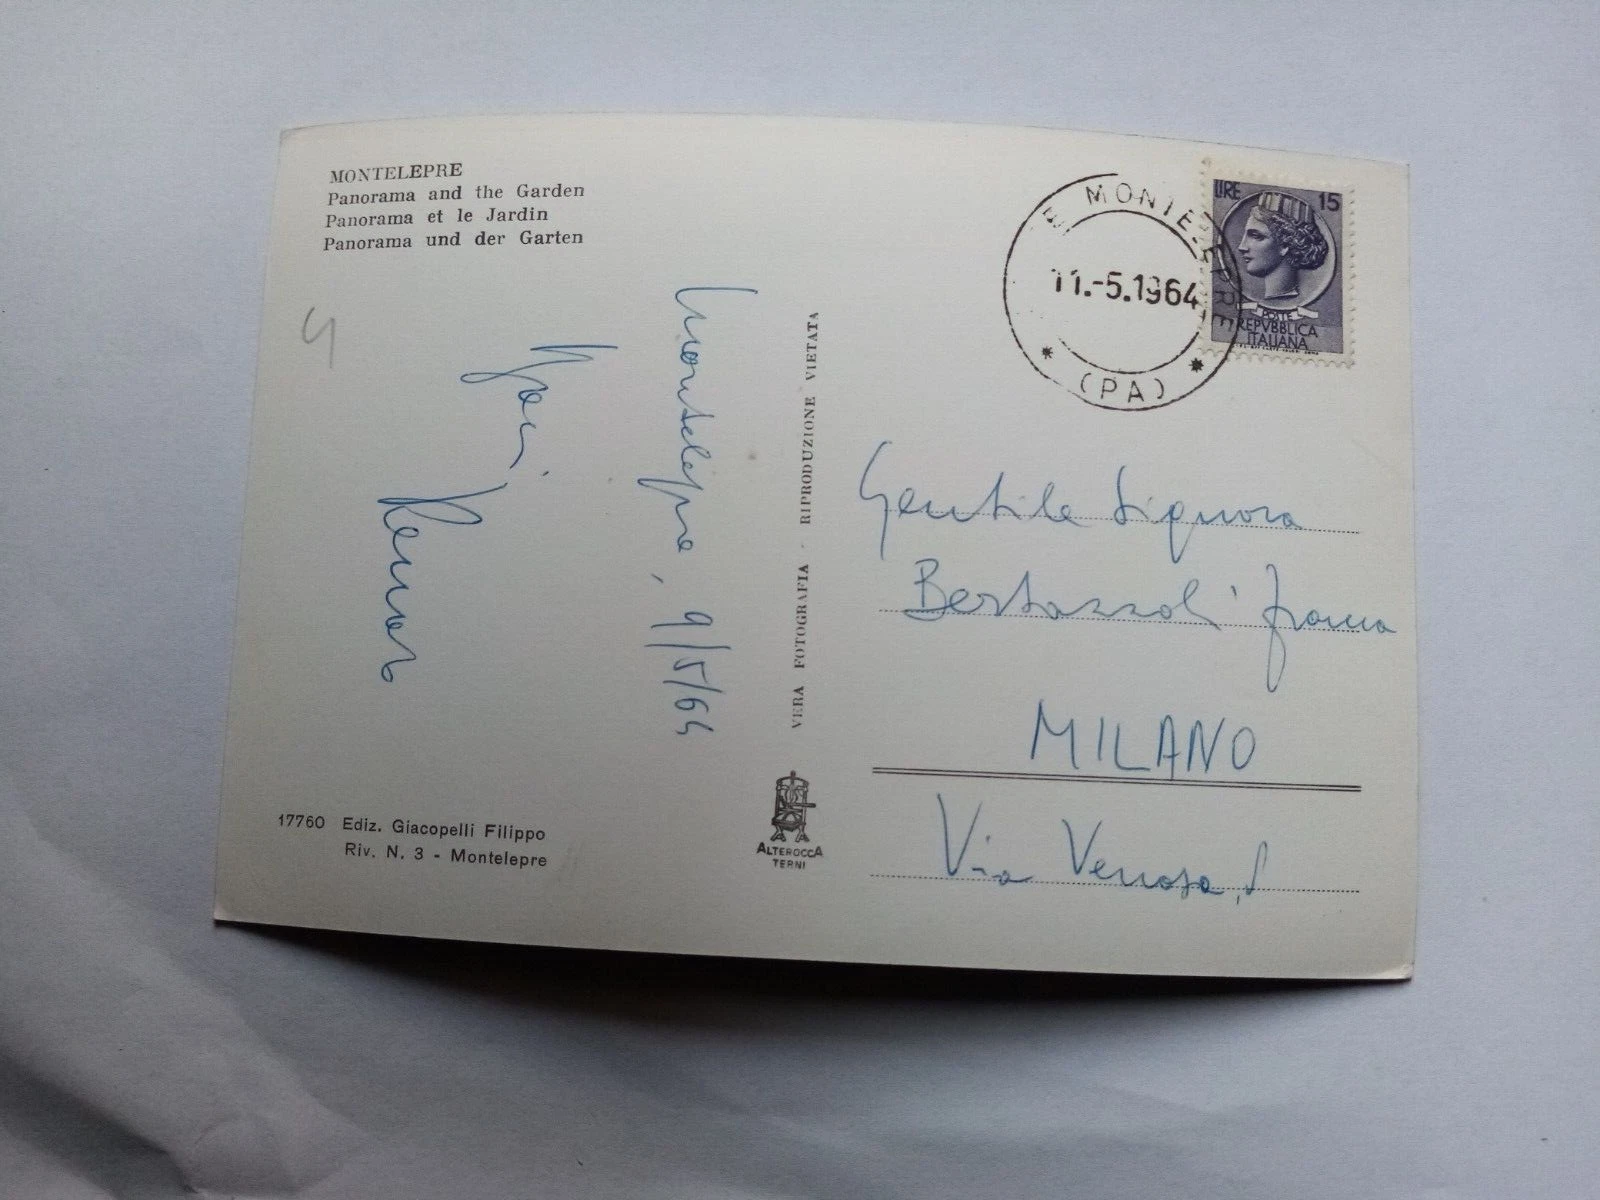 MONTELEPRE
Panorama and the Garden
Panorama et le Jardin
Panorama und der Garten
4
Montelepre, 9/5/64
17760 Ediz. Giacopelli Filippo
Riv. N. 3 - Montelepre
VERA FOTOGRAFIA - RIPRODUZIONE VIETATA
ALTEROCCA
TERNI
MONTELEPRE
11.-5.1964
(PA)
LIRE 15
POSTE
REPVBBLICA
ITALIANA
Gentile Signora
Bertazzoli Franca
MILANO
Via Venosa,